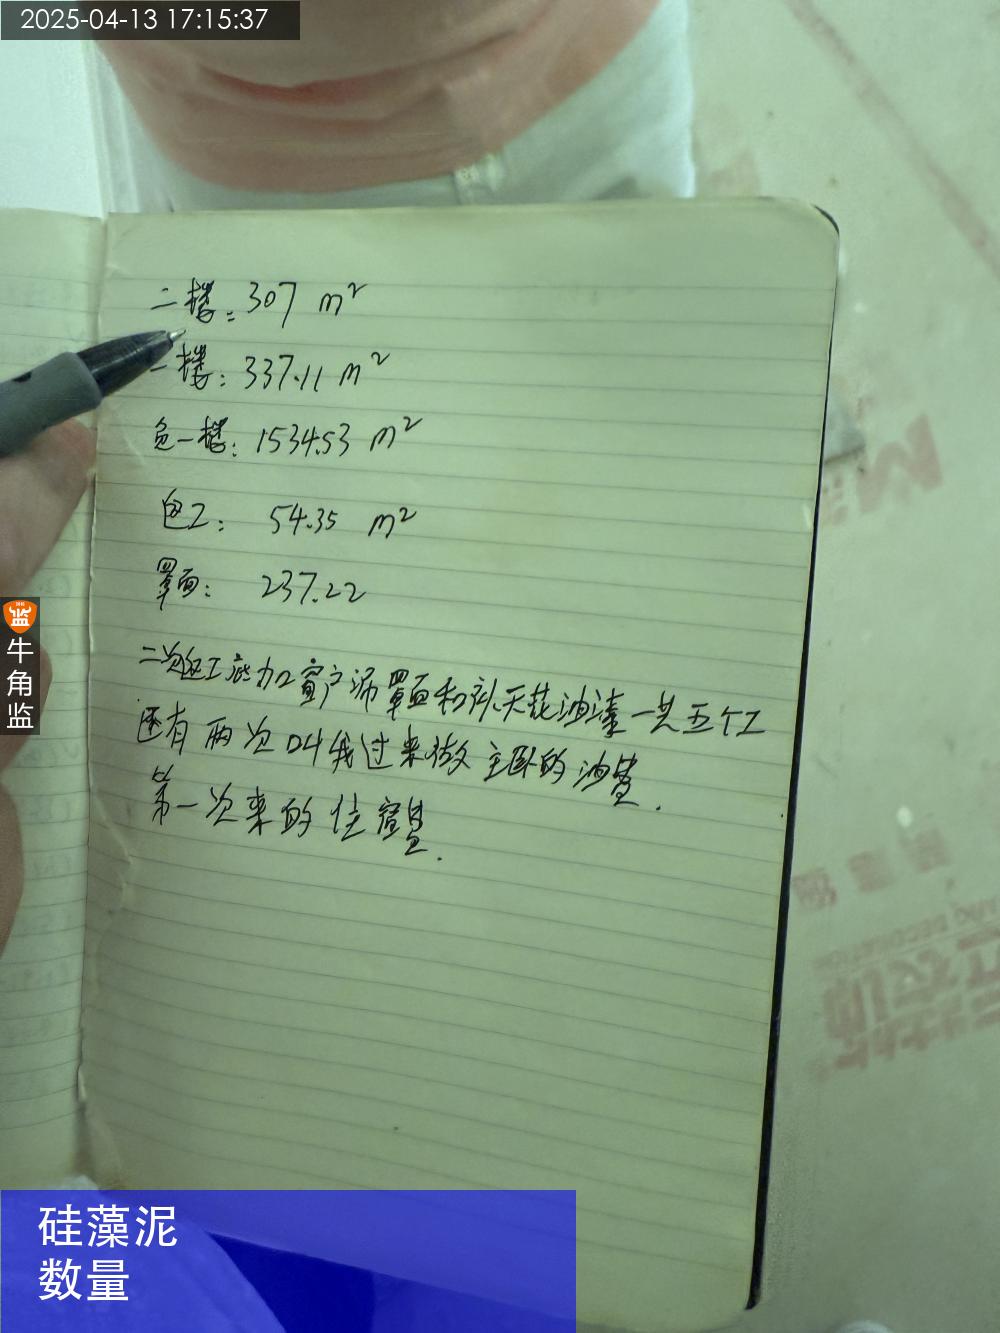 2025-04-13 17:15:37
二楼：307 m²
一楼：337.11 m²
色一楼：1534.53 m²
色2： 54.35 m²
罩面： 237.22
二次 工底加 窗户 罩面和补天花油漆一共五个工
还有两次叫我过来做主卧的油
第一次来的位置.
牛角监
硅藻泥
数量